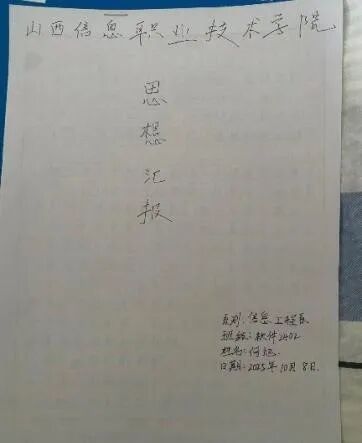 山西信息职业技术学院
思
想
汇
报
系别:信息工程系
班级:软件2402
姓名:何旭
日期:2025年10月8日